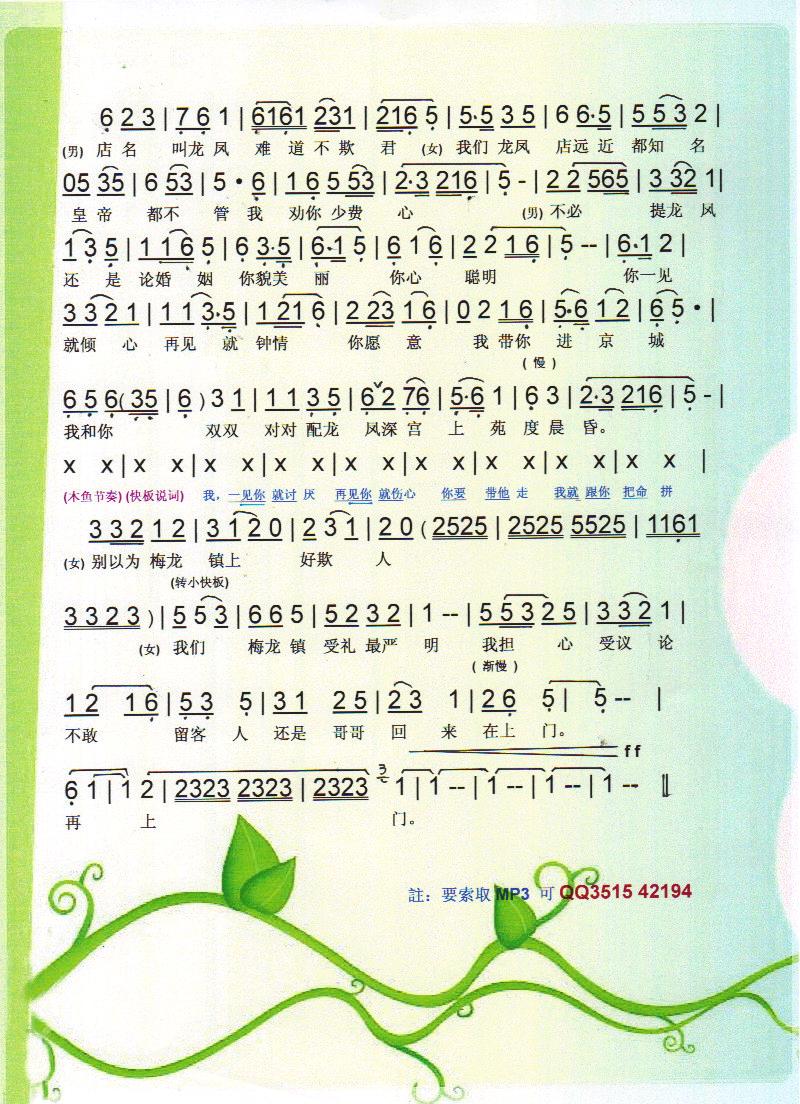 6 2 3 | 7 6 1 | 6161 231 | 216 5 | 5·5 3 5 | 6 6·5 | 5 5 3 2 |
(男) 店 名 叫龙 凤 难 道 不 欺 君 (女) 我们 龙凤 店远 近 都知 名
05 35 | 6 53 | 5 • 6 | 1 6 5 53 | 2·3 216 | 5 - | 2 2 565 | 3 32 1 |
皇 帝 都不 管 我 劝你 少费 心 (男) 不必 提龙 凤
1 3 5 | 1 1 6 5 | 6 3·5 | 6·1 5 | 6 1 6 | 2 2 1 6 | 5 -- | 6·1 2 |
还 是 论婚 姻 你貌美 丽 你心 聪明 你一见
3 3 2 1 | 1 1 3·5 | 1 21 6 | 2 23 1 6 | 0 2 1 6 | 5·6 1 2 | 6 5 • |
就倾 心 再见 就 钟情 你愿 意 我 带你 进 京 城
(慢)
6 5 6 ( 35 | 6 ) 3 1 | 1 1 3 5 | 6 2 76 | 5·6 1 | 6 3 | 2·3 216 | 5 - |
我和你 双双 对对 配龙 凤深 宫 上 苑 度 晨 昏。
x x | x x | x x | x x | x x | x x | x x | x x |
(木鱼节奏) (快板说词) 我，一见你 就讨 厌 再见你 就伤心 你要 带他 走 我就 跟你 把命 拼
3 3 2 1 2 | 3 1 2 0 | 2 3 1 | 2 0 ( 2525 | 2525 5525 | 1161
(女) 别以为 梅龙 镇上 好欺 人
(转小快板)
3 3 2 3 ) | 5 5 3 | 6 6 5 | 5 2 3 2 | 1 -- | 5 5 3 2 5 | 3 3 2 1 |
(女) 我们 梅龙 镇 受礼 最严 明 我担 心 受议 论
(渐慢)
1 2 1 6 | 5 3 5 | 3 1 2 5 | 2 3 1 | 2 6 5 | 5 -- |
不敢 留客 人 还是 哥哥 回 来 在上 门。
ff
6 1 | 1 2 | 2323 2323 | 2323 3 1 | 1 -- | 1 -- | 1 -- | 1 -- ‖
再 上 门。
註：要索取 MP3 可 QQ3515 42194